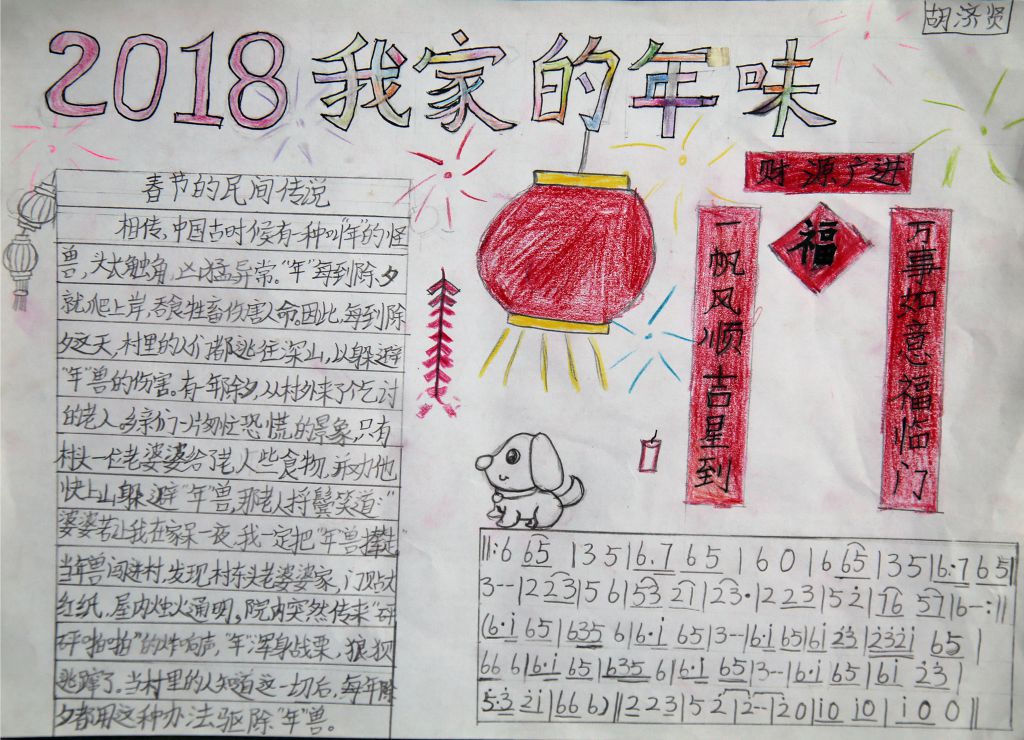 胡济贤
2018我家的年味
春节的民间传说
相传,中国古时候有一种叫“年”的怪
兽,头大触角,凶猛异常。“年”每到除夕
就爬上岸,吞食牲畜伤害人命。因此,每到除
夕这天,村里的人们都逃往深山,以躲避
“年”兽的伤害。有一年除夕,从村外来了个乞讨
的老人。乡亲们一片匆忙恐慌的景象,只有
村头一位老婆婆给了老人些食物,并劝他
快上山躲避“年”兽,那老人捋鬓笑道:“
婆婆若让我在家呆一夜,我一定把“年兽撵走。
当年兽闯进村,发现村东头老婆婆家,门贴大
红纸,屋内烛火通明,院内突然传来“砰
砰啪啪”的炸响声,“年”浑身战栗,狼狈
逃蹿了。当村里的人知道这一切后,每年除
夕都用这种办法驱除“年”兽。
财源广进
一帆风顺吉星到
福
万事如意福临门
||:6 65 |35|6.7 65 |60|6 65|35|6.7 65|
3--|2 23|56|53 21|23.|2 23|52|76 57|6--:||
(6.i 65|635 6|6.i 65|3--|6.i 65|6i 23|232i 65|
66 6|6.i 65|635 6|6.i 65|3--|6.i 65|6i 23|
5.3 2i|66 6)||2 23|52|2--|20|i0 i0|i0 0||